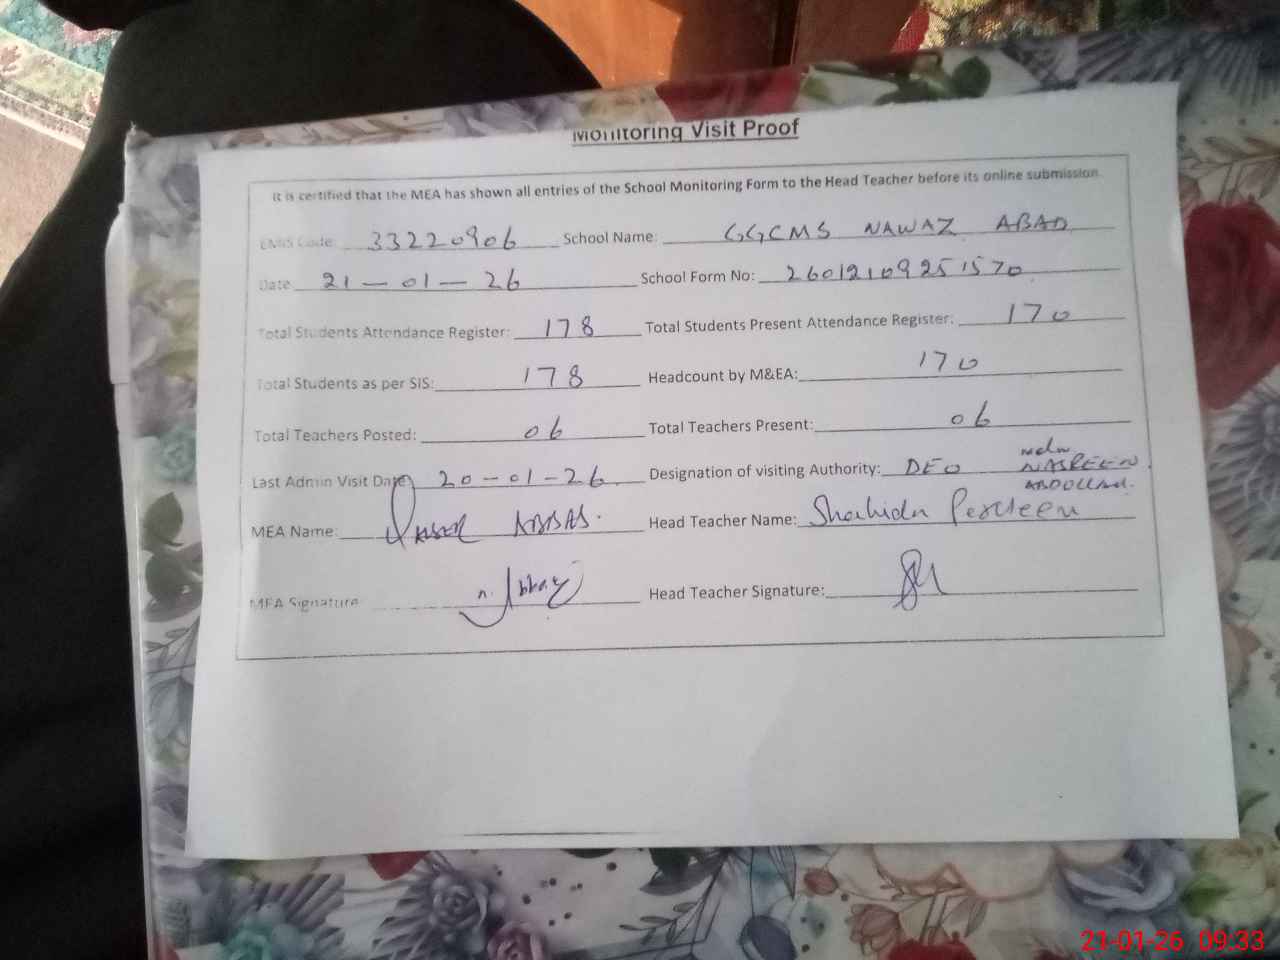 Monitoring Visit Proof
It is certified that the MEA has shown all entries of the School Monitoring Form to the Head Teacher before its online submission.
EMIS Code: 33220906 School Name: GGCMS NAWAZ ABAD
Date 21-01-26 School Form No: 26012109251570
Total Students Attendance Register: 178 Total Students Present Attendance Register: 170
Total Students as per SIS: 178 Headcount by M&EA: 170
Total Teachers Posted: 06 Total Teachers Present: 06
Last Admin Visit Date 20-01-26 Designation of visiting Authority: DEO NASREEN
MEA Name: ABBAS. Head Teacher Name: Shahida Perveen
MEA Signature: Head Teacher Signature:
21-01-26 09:33